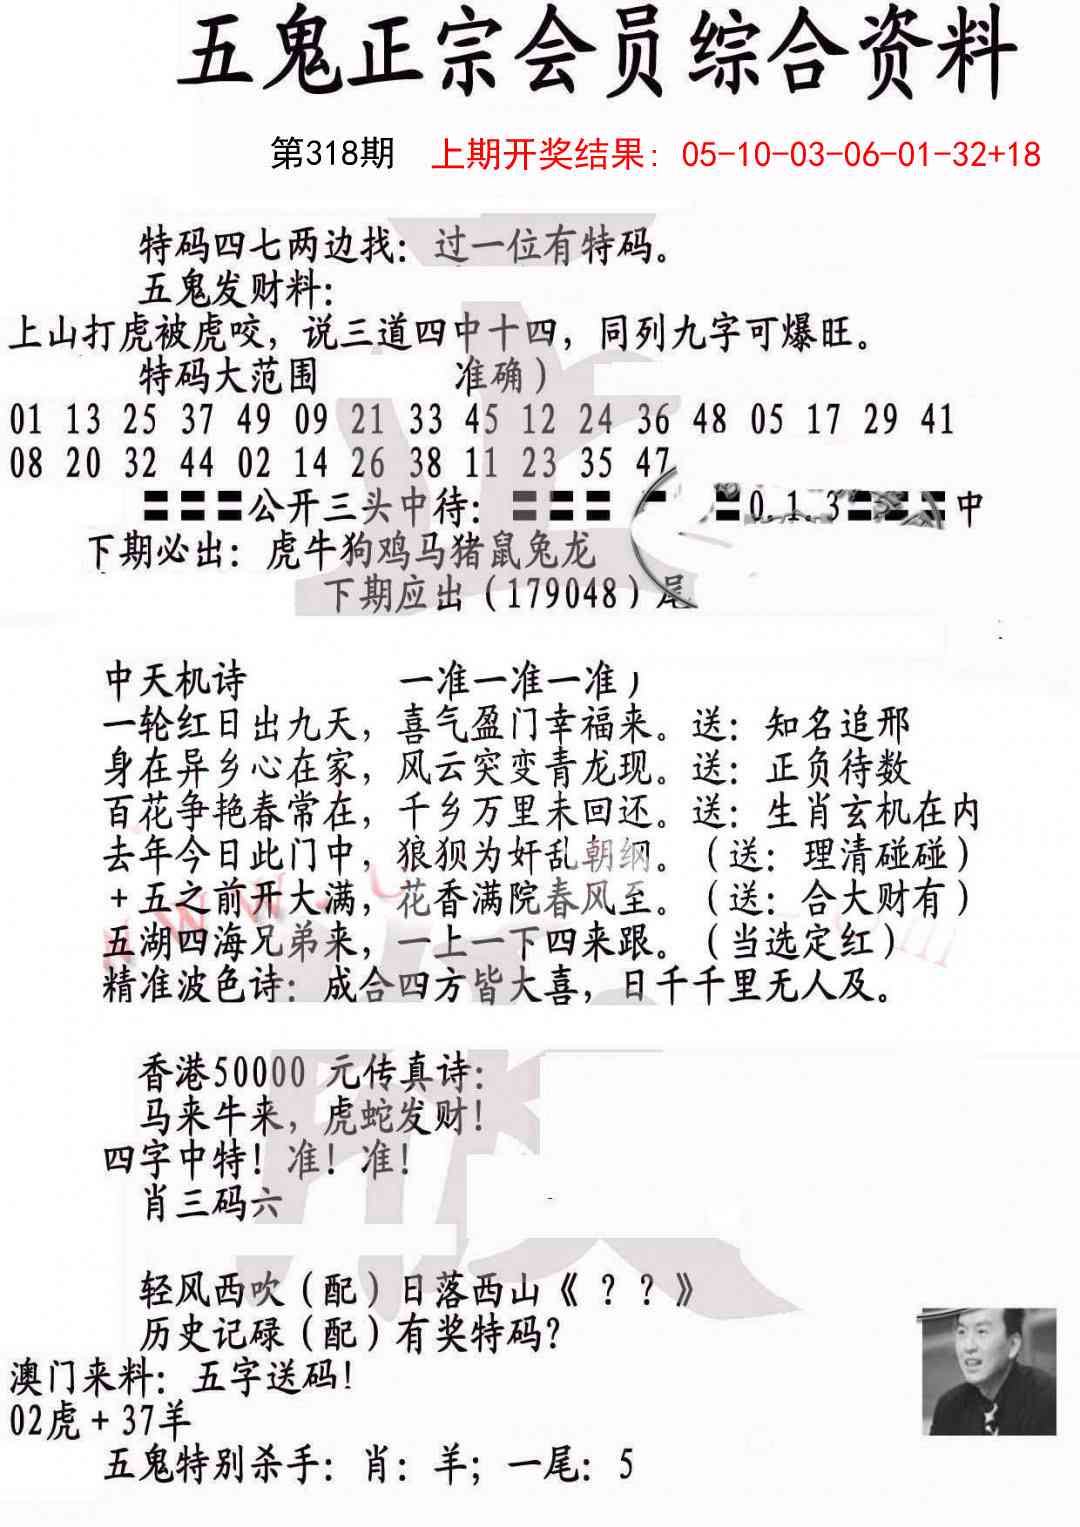 五鬼正宗会员综合资料
第318期 上期开奖结果: 05-10-03-06-01-32+18
特码四七两边找: 过一位有特码。
五鬼发财料:
上山打虎被虎咬, 说三道四中十四, 同列九字可爆旺。
特码大范围 准确)
01 13 25 37 49 09 21 33 45 12 24 36 48 05 17 29 41
08 20 32 44 02 14 26 38 11 23 35 47
〓〓〓公开三头中待: 〓〓〓 〓0.1.3〓〓〓中
下期必出: 虎牛狗鸡马猪鼠兔龙
下期应出(179048)尾
中天机诗 一准一准一准)
一轮红日出九天, 喜气盈门幸福来。送: 知名追邢
身在异乡心在家, 风云突变青龙现。送: 正负待数
百花争艳春常在, 千乡万里未回还。送: 生肖玄机在内
去年今日此门中, 狼狈为奸乱朝纲。(送: 理清碰碰)
+五之前开大满, 花香满院春风至。(送: 合大财有)
五湖四海兄弟来, 一上一下四来跟。(当选定红)
精准波色诗: 成合四方皆大喜, 日千千里无人及。
香港50000 元传真诗:
马来牛来, 虎蛇发财!
四字中特! 准! 准!
肖三码六
轻风西吹(配)日落西山《 ? ? 》
历史记碌(配)有奖特码?
澳门来料: 五字送码!
02虎+37羊
五鬼特别杀手: 肖: 羊; 一尾: 5